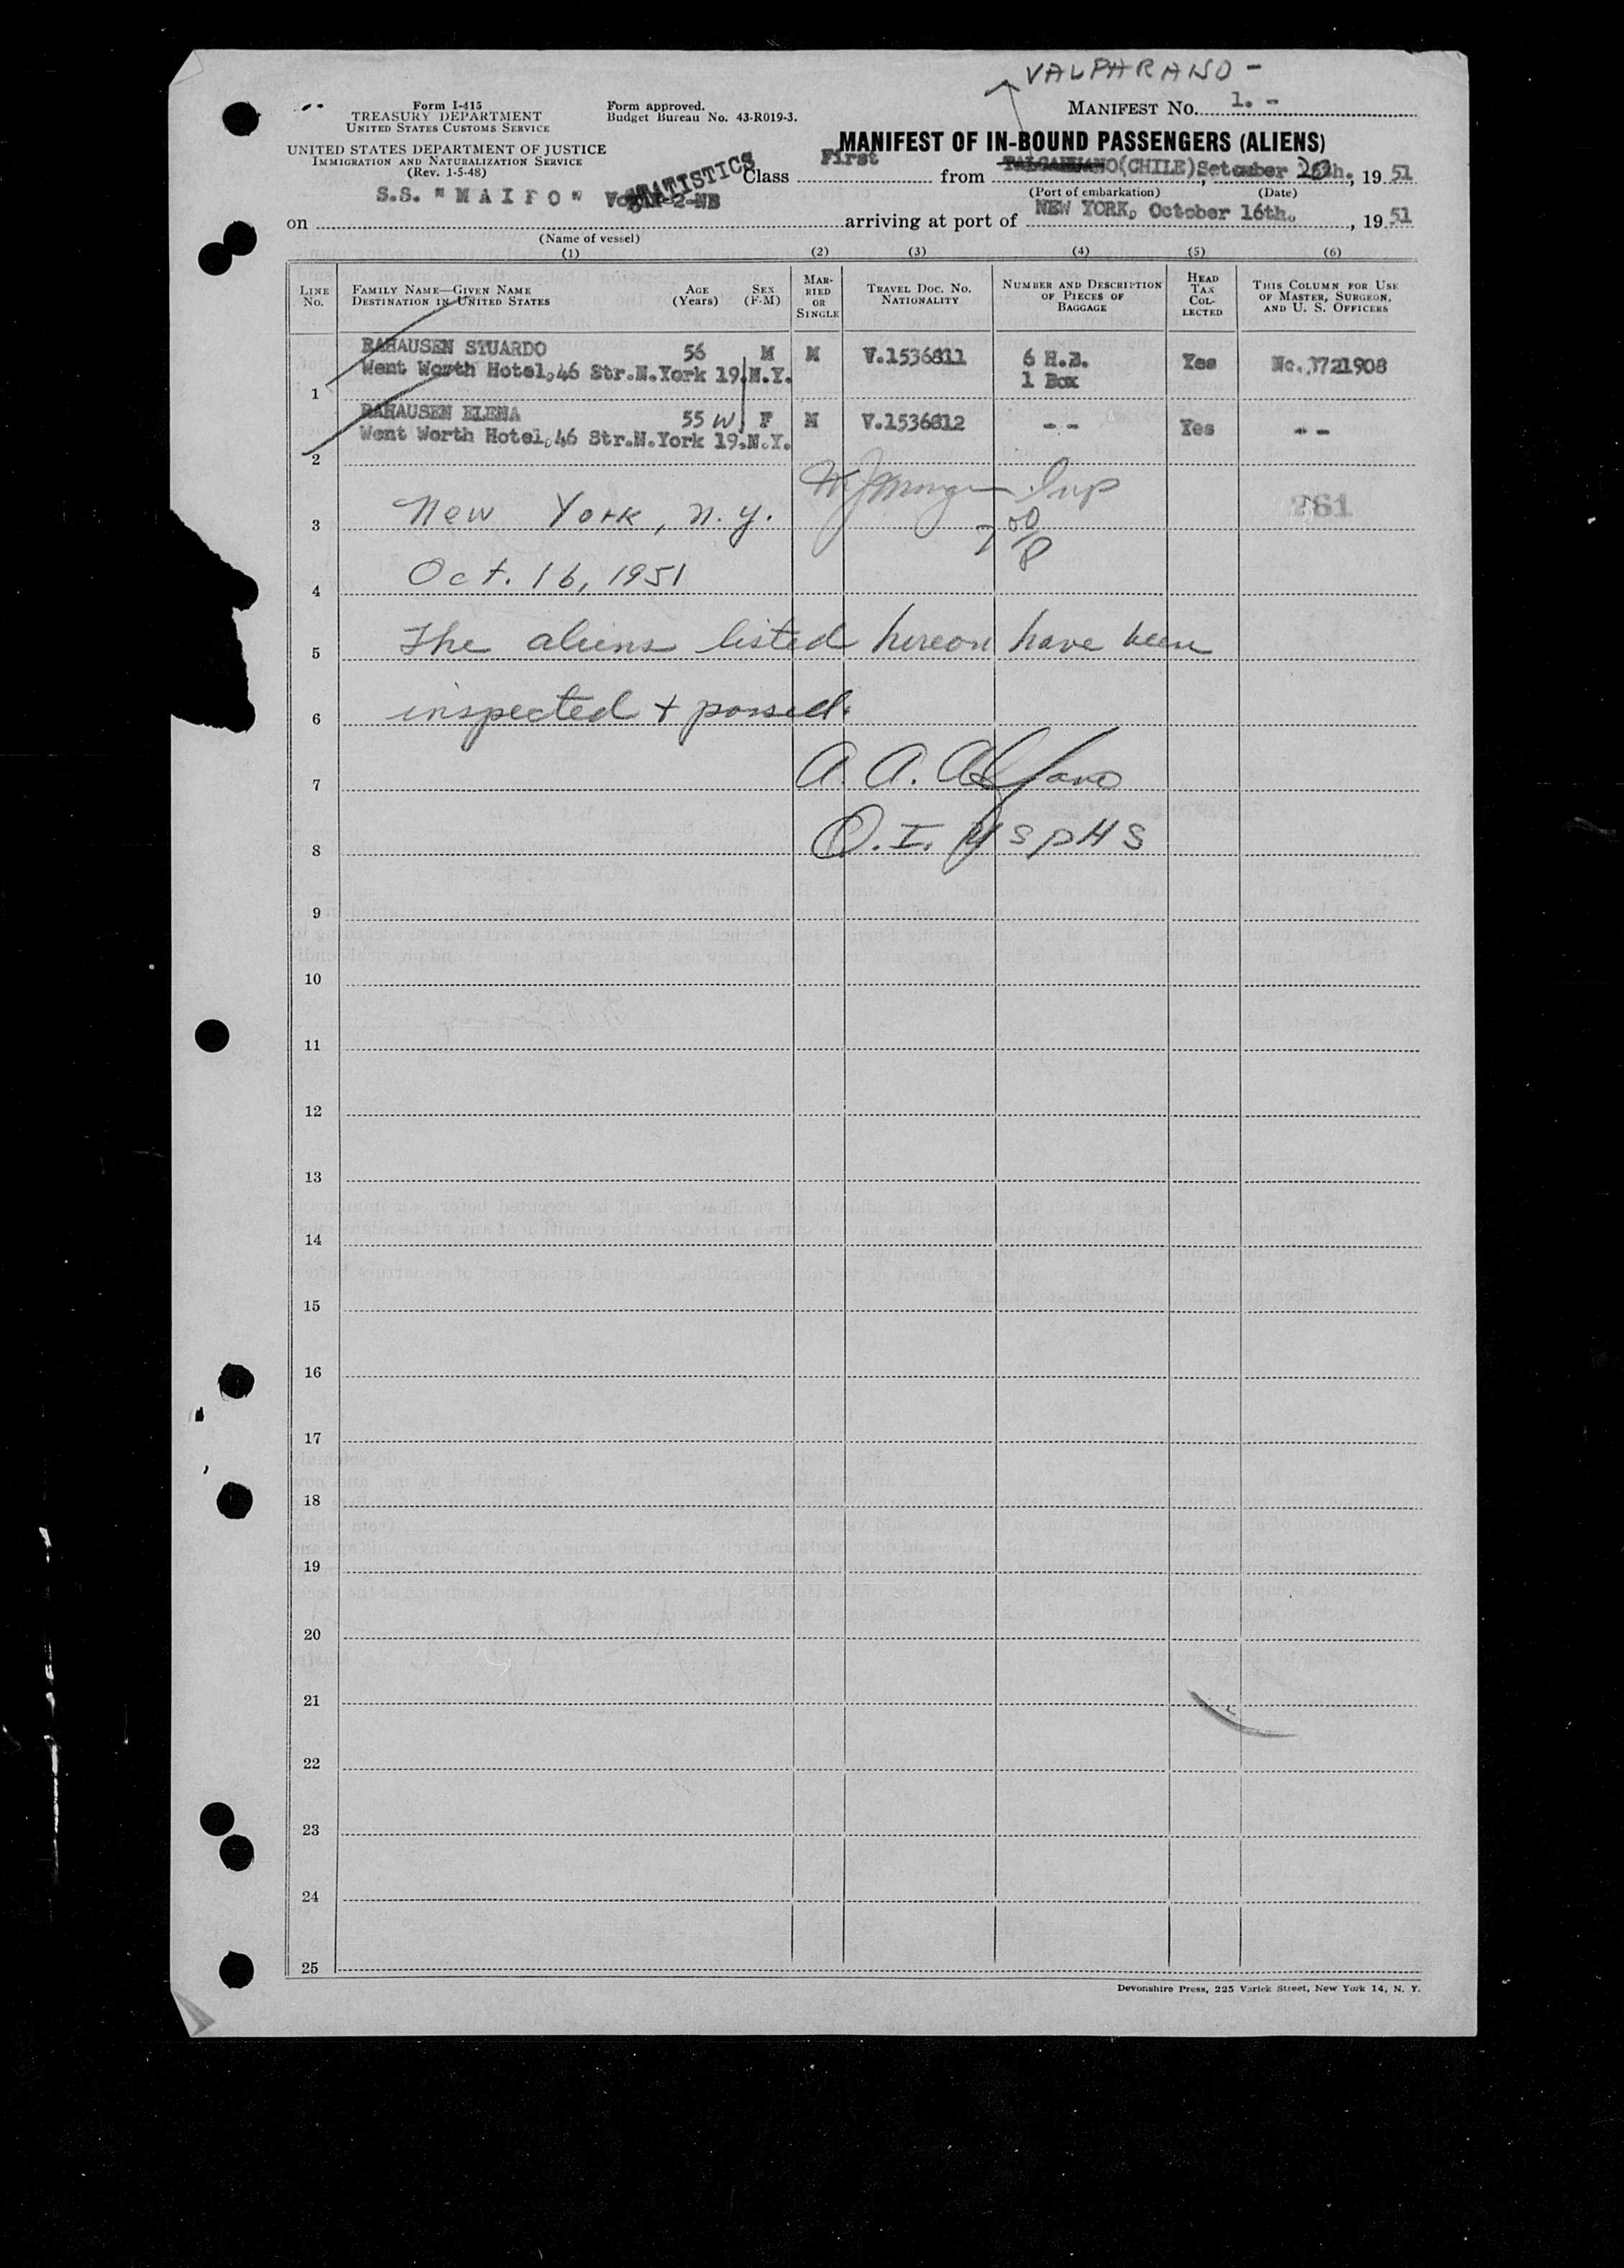 VALPHRAISO -
Form I-415
TREASURY DEPARTMENT
UNITED STATES CUSTOMS SERVICE
Form approved.
Budget Bureau No. 43-R019-3.
MANIFEST NO. 1. -
UNITED STATES DEPARTMENT OF JUSTICE
IMMIGRATION AND NATURALIZATION SERVICE
(Rev. 1-5-48)
MANIFEST OF IN-BOUND PASSENGERS (ALIENS)
STATISTICS
Class First from TALCAHUANO(CHILE) , 19 51
(Port of embarkation) (Date)
S.S. "MAIPO"
on arriving at port of NEW YORK, October 16th. , 19 51
(Name of vessel)
(1) (2) (3) (4) (5) (6)
LINE No. FAMILY NAME—GIVEN NAME DESTINATION IN UNITED STATES AGE (Years) SEX (F-M) MARRIED OR SINGLE TRAVEL DOC. NO. NATIONALITY NUMBER AND DESCRIPTION OF PIECES OF BAGGAGE HEAD TAX COLLECTED THIS COLUMN FOR USE OF MASTER, SURGEON, AND U. S. OFFICERS
RAHAUSEN STUARDO 56 M M V.1536811 6 H.B. Yes No.3721908
Went Worth Hotel,46 Str.N.York 19.N.Y. 1 Box
1
RAHAUSEN ELENA 55 W F M V.1536812 - - Yes - -
Went Worth Hotel,46 Str.N.York 19.N.Y.
2
Insp
3 New York, N.Y. 261
4 Oct. 16, 1951
5 The aliens listed hereon have been
6 inspected + passed.
7 A. A. Alfano
8 Q. I. USPHS
9
10
11
12
13
14
15
16
17
18
19
20
21
22
23
24
25
Devonshire Press, 225 Varick Street, New York 14, N. Y.